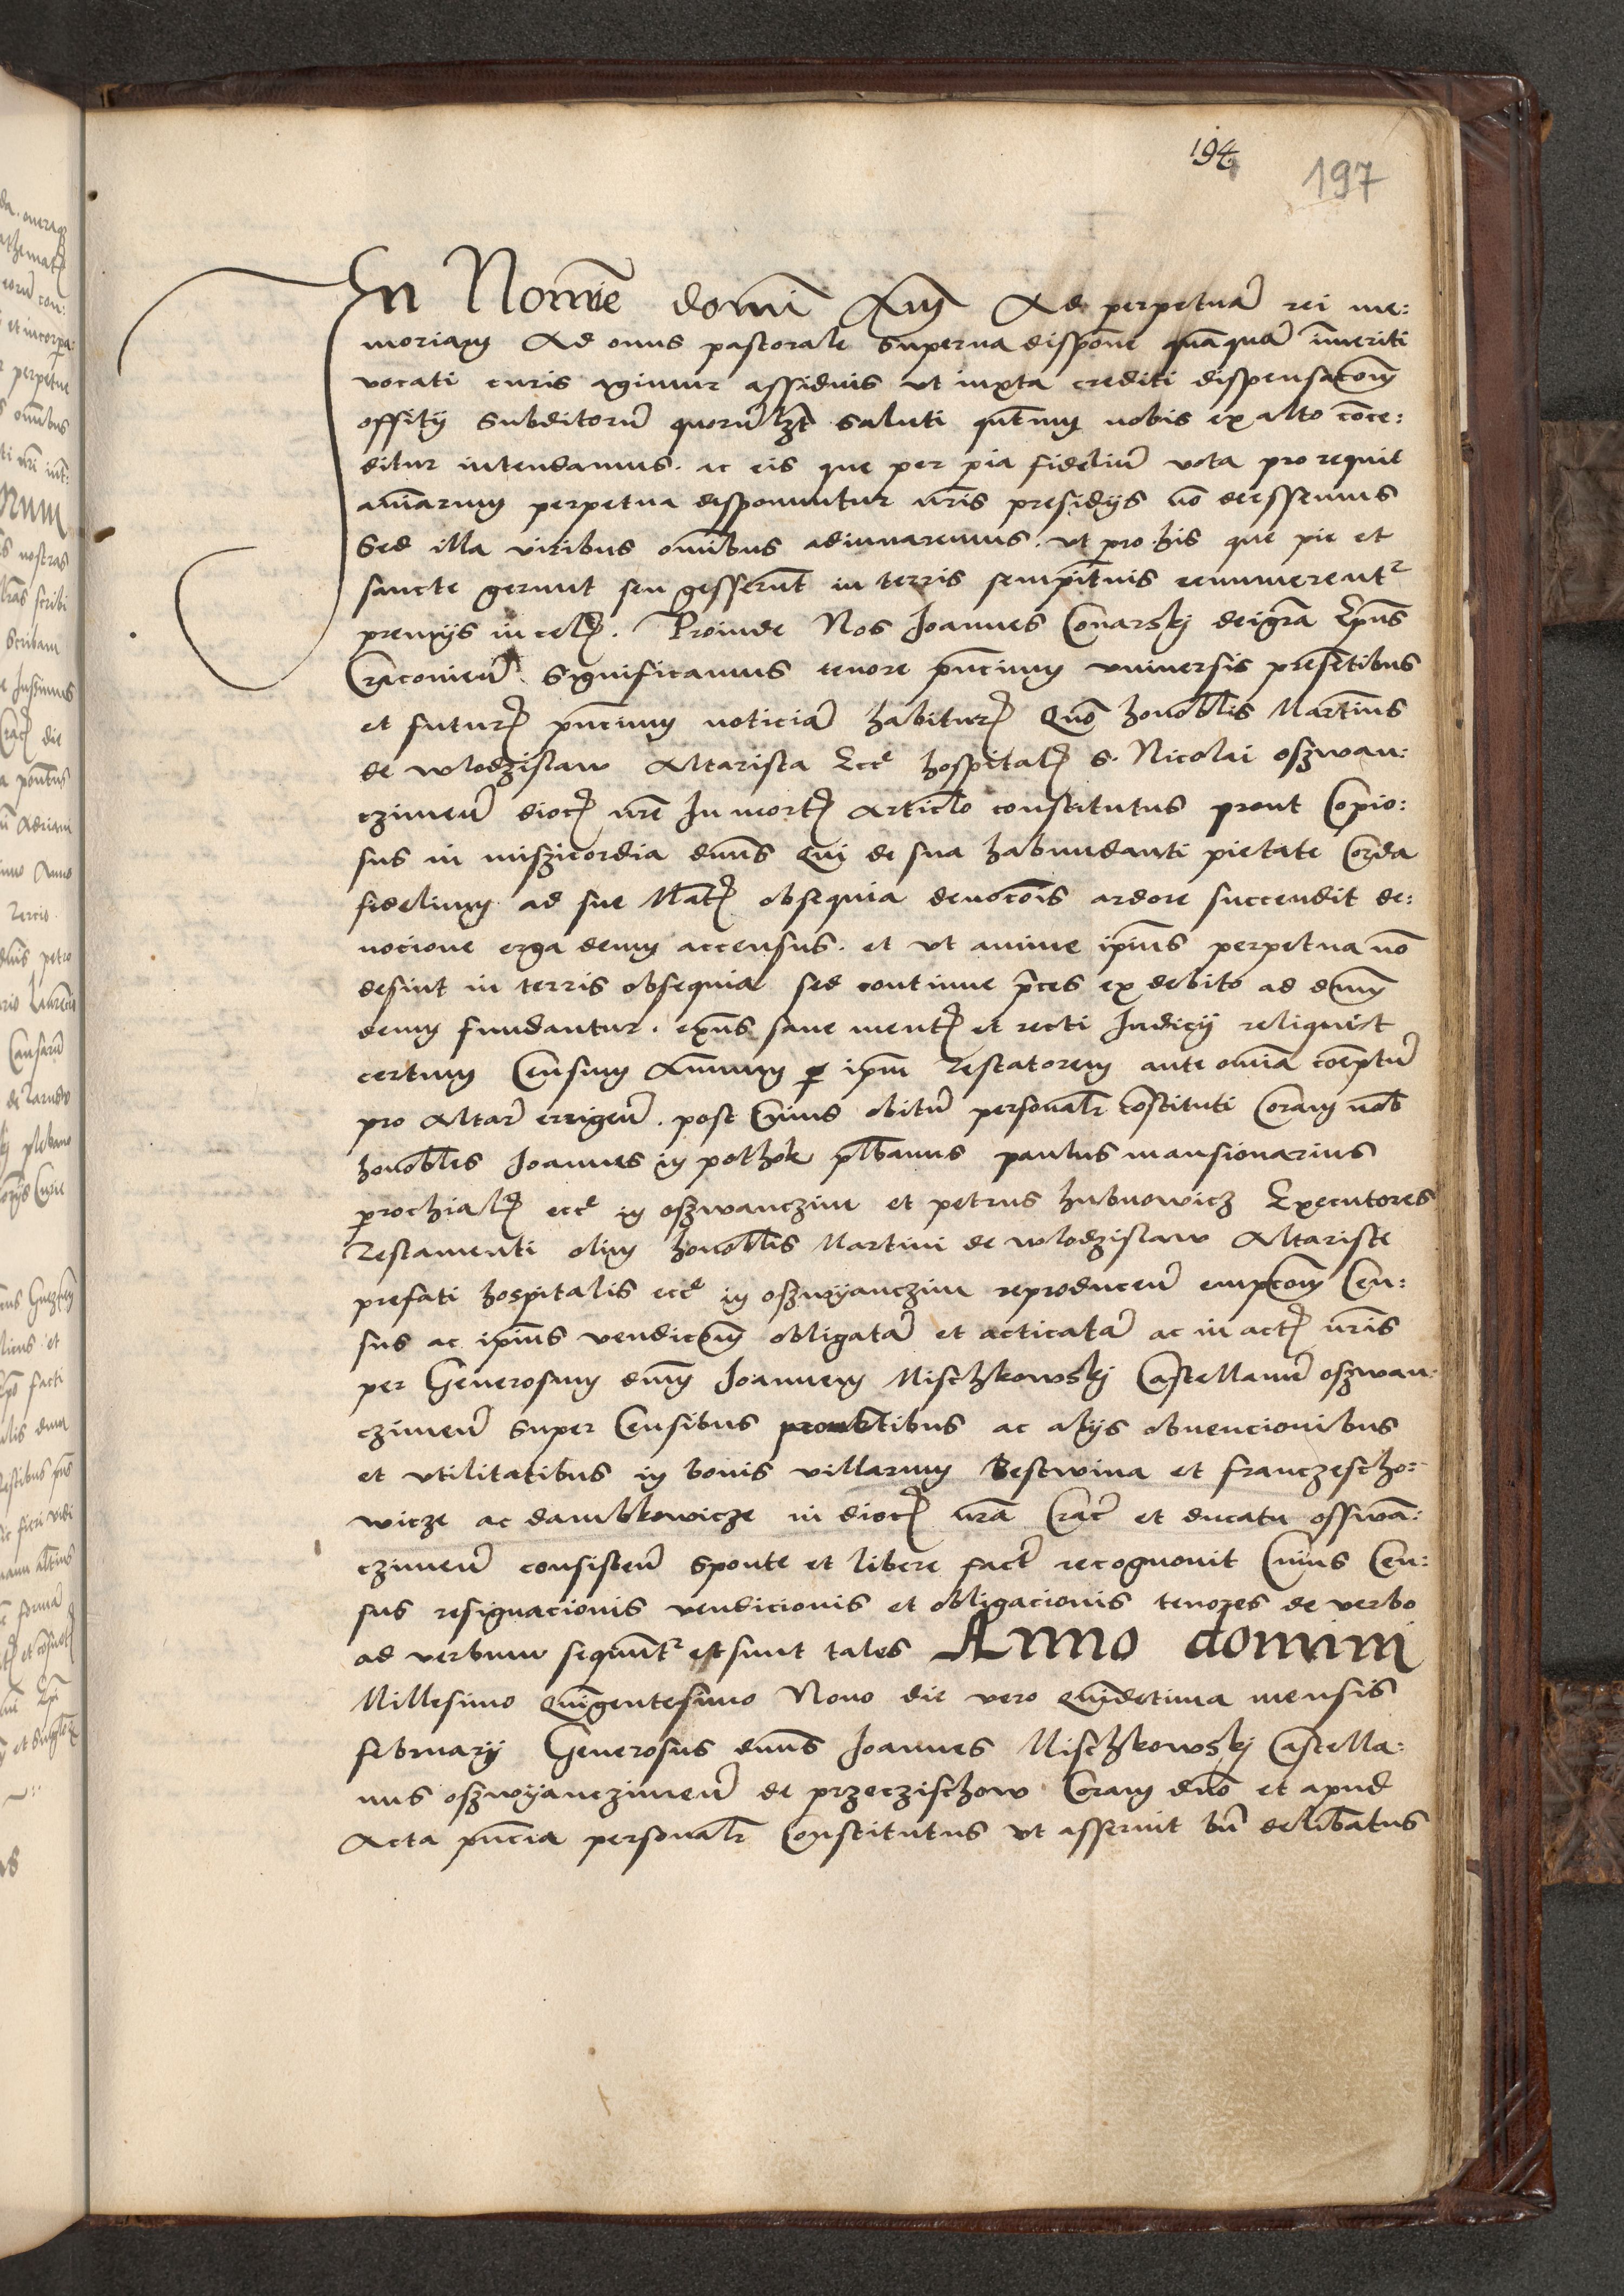 194
197
In Nomīe domī Am̄ Ad perpetuā rei me:
moriam Ad onus pastorale superna dispone quāquā īmeriti
vocati curis agimur assiduis ut iuxta crediti dispensacōm
offitij subditorū quorūlzt saluti qntum nobis ex alto cōce:
ditur intendamus. ac eis que per pia fideliū vota pro requie
aīarum perpetua disponuntur nr̄is presidijs nō deessemus
Sed illa viribus omībus adiuuaremus. ut pro his que pie et
sancte gerunt seu gesserūt in terris sempit̄nis remunerent̄
premijs in cel. Proinde Nos Joannes Conarskj dei gr̄a Ep̄us
Cracovien̄. significamus tenore pn̄cium vniuersis presētibus
et futur pn̄cium noticiā habitur Quō honobl̄is Martīus
de wlodzislaw Altarista Ecc̄e hospital S. Nicolai oszwan:
czimen̄ dioc nr̄e In mort articl̄o constitutus prout Copio:
sus in misz̄icordia dn̄us Qui de sua habundanti pietate Corda
fidelium ad sue Ma͠t obsequia deuocōis ardore succendit de:
uocione erga deum accensus. et ut anime ip̄ius perpetua nō
desint in terris obsequia sed continue p̄ces ex debito ad dn̄m
deum fundantur. exn̄s sane ment et recti Judicij reliquit
certum Censum Annuum p ip̄m Testatorem ante omīa cōeptū
pro Altar̄ errigen̄. post Cuius obitū personalr̄ cōstituti Coram nob̄
honobl̄es Joannes in pothok pl̄banus paulus mansionarius
prochial ecc̄e in oszwanczim et petrus hubnowicz Executores
Testamenti olim honobl̄is Martini de wlodzislaw Altariste
prefati hospitalis ecc̄e in oszwyanczim reproducen̄ empcōm Cen:
sus ac ip̄ius vendicōm obligatā et acticatā ac in act nr̄is
per Generosum dn̄m Joannem Mischkowskj Castellanū oszwan:
czimen̄ super Censibus prouētibus ac alijs obuencionibus
et vtilitatibus in bonis villarum Bestwina et franczescho:
wicze ac dambkowicze in dioc nr̄a Crac̄ et ducatu osswā:
czimen̄ consisten̄ sponte et libere fact̄ recognouit Cuius Cen:
sus resignacionis vendicionis et obligacionis tenores de verbo
ad verbum sequūt̄ et sunt tales Anno domini
Millesimo Quīgentesimo Nono die vero Quīdecima mensis
februarij Generosus dn̄us Joannes Mischkowskj Castella:
nus oszwyanczimen̄ de przeczischow Coram dn̄o et apud
Acta pn̄cia personalr̄ Constitutus ut asseruit bn̄ delib̄atus